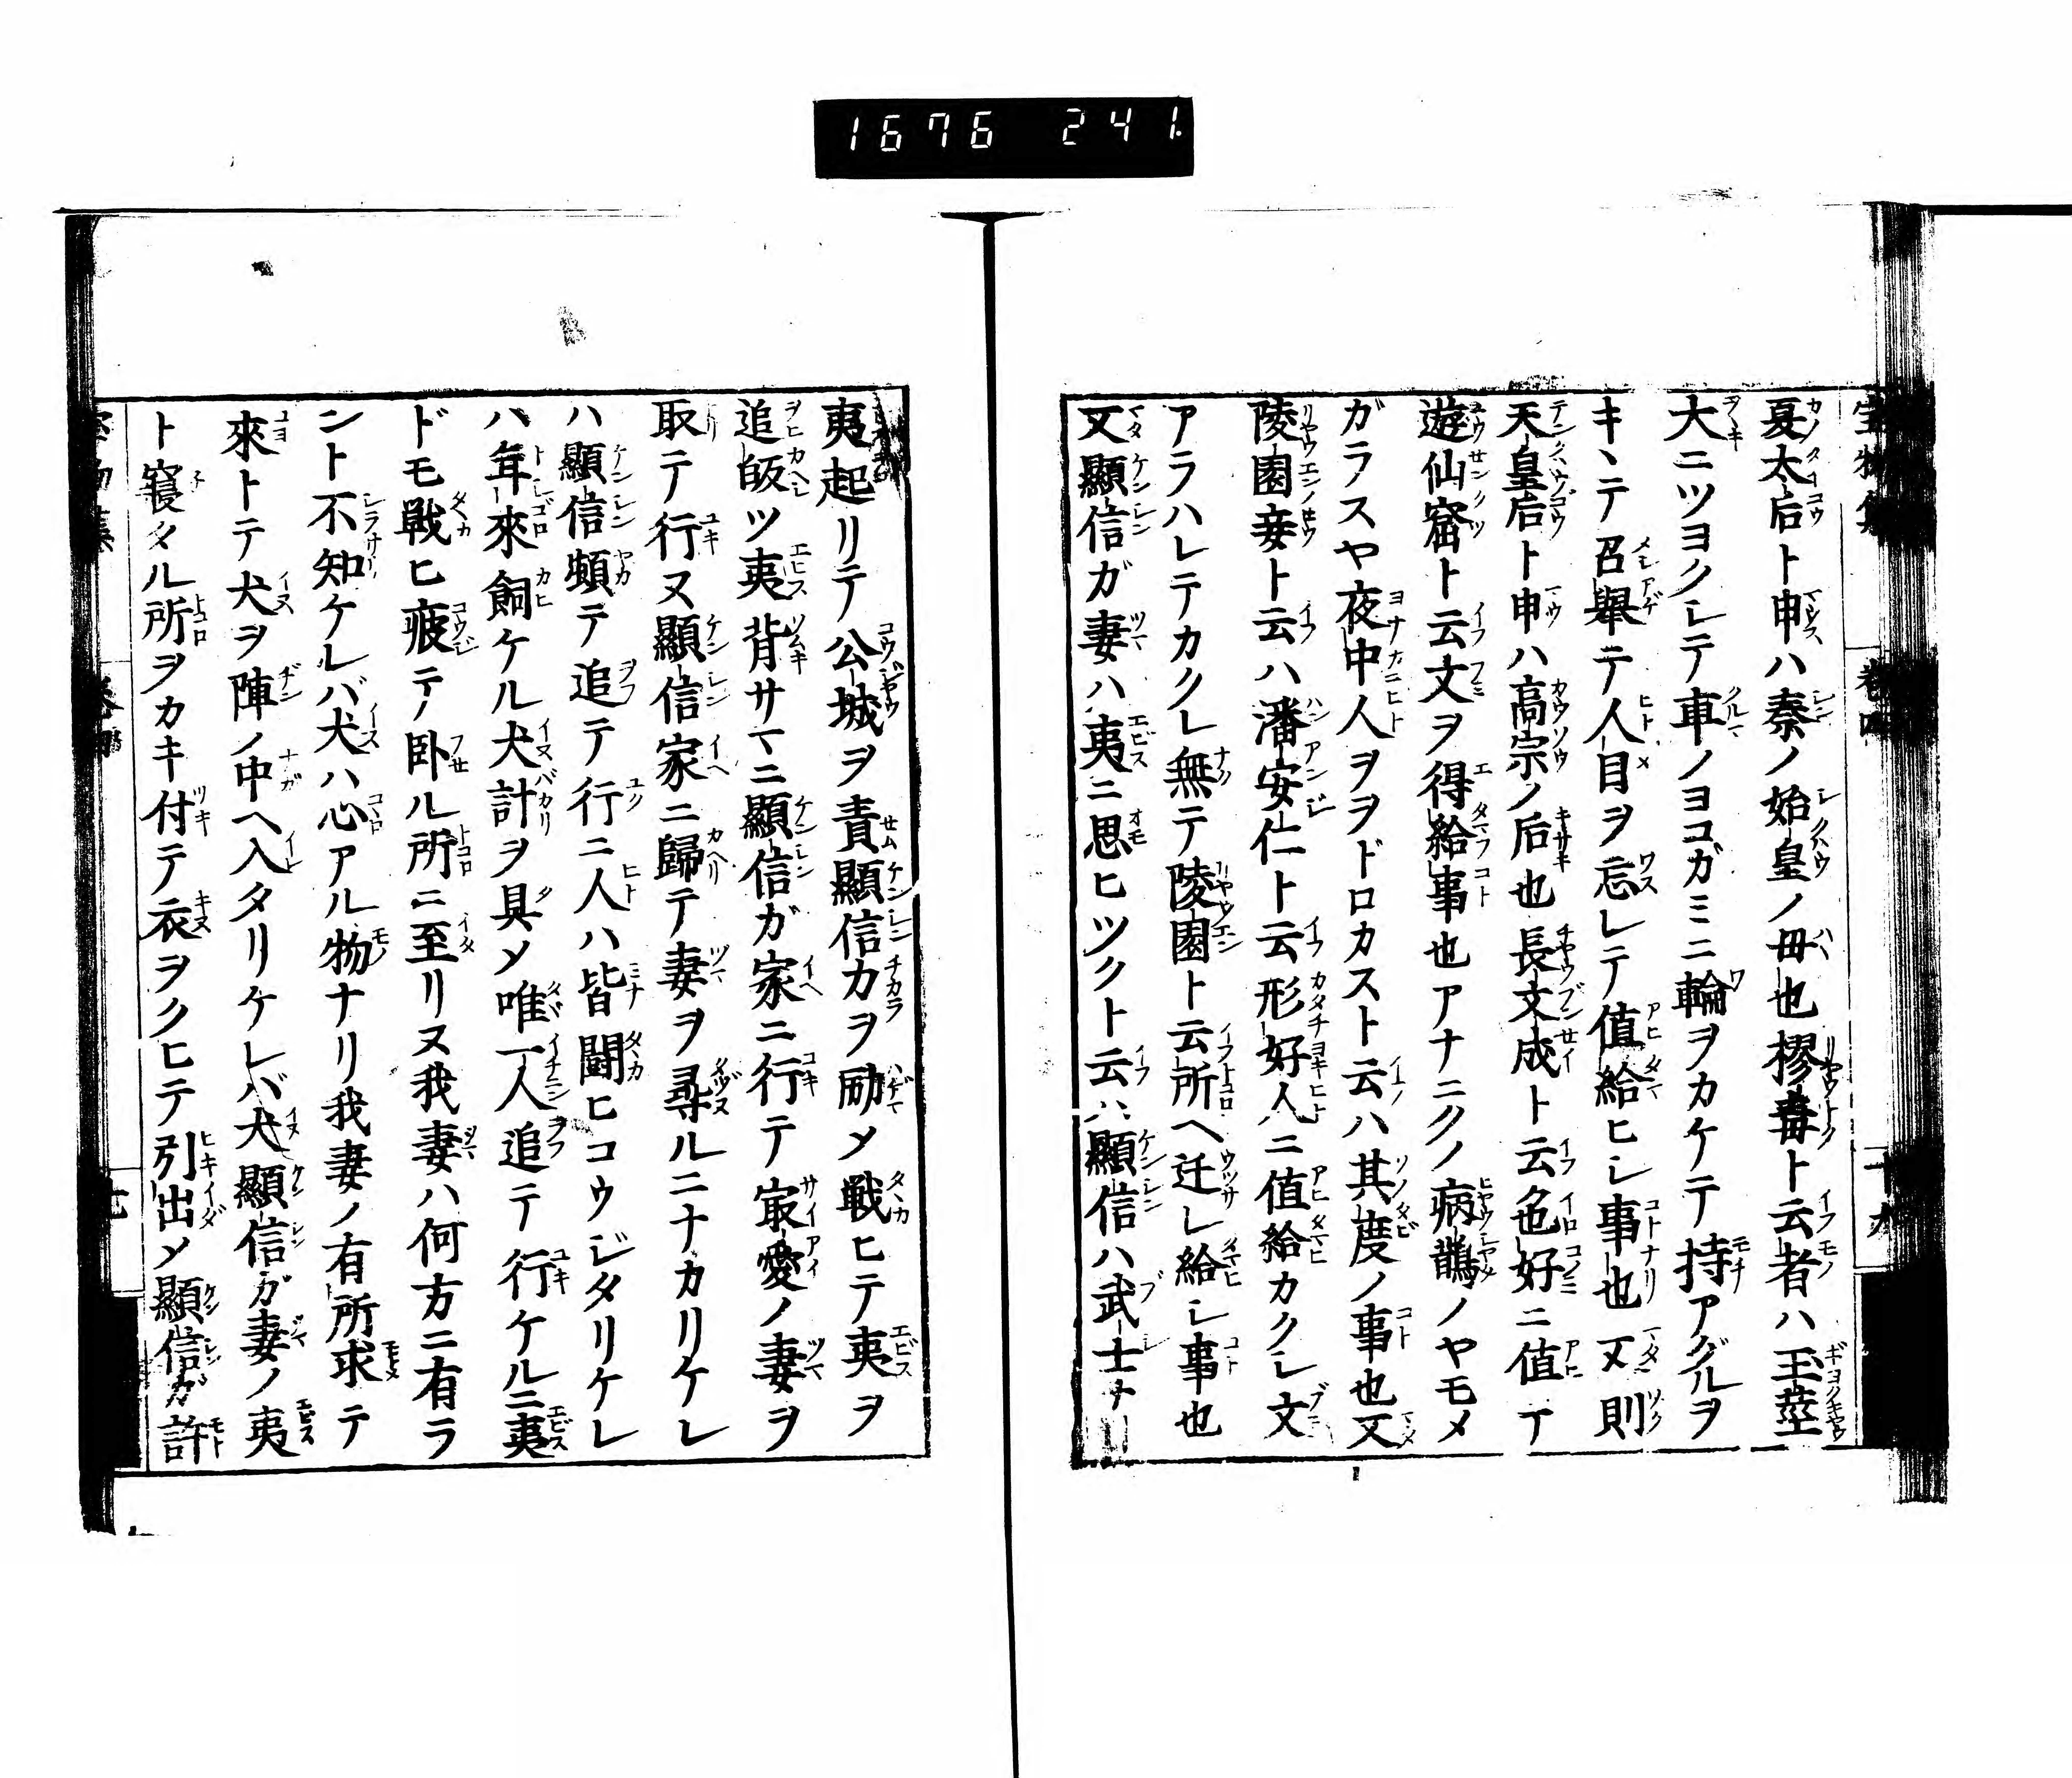 1676 241.
夏太后ト申ハ秦ノ始皇ノ母也樛毐ト云者ハ玉莖
大ニツヨクシテ車ノヨコガミニ輪ヲカケテ持アグルヲ
キヽテ召擧テ人目ヲ忘レテ値給ヒシ事也又則
天皇后ト申ハ高宗ノ后也長文成ト云色好ニ値テ
遊仙窟ト云文ヲ得給事也アナニクノ病鵲ノヤモメ
ガラスヤ夜中人ヲヲドロカスト云ハ其度ノ事也又
陵園妾ト云ハ潘安仁ト云形好人ニ値給カクレ文
アラハレテカクレ無テ陵園ト云所ヘ迁レ給シ事也
又顯信ガ妻ハ夷ニ思ヒツクト云ハ顯信ハ武士ナ
夷起リテ公城ヲ責顯信カヲ励メ戦ヒテ夷ヲ
追皈ツ夷背サマニ顯信ガ家ニ行テ寂愛ノ妻ヲ
取テ行ヌ顯信家ニ歸テ妻ヲ尋ルニナカリケレ
ハ顯信頓テ追テ行ニ人ハ皆闘ヒコウジタリケレ
ハ年來飼ケル犬計ヲ具メ唯一人追テ行ケルニ夷
ドモ戦ヒ疲テ卧ル所ニ至リヌ我妻ハ何方ニ有ラ
ント不知ケレバ犬ハ心アル物ナリ我妻ノ有所求テ
來トテ犬ヲ陣ノ中ヘ入タリケレバ犬顯信ガ妻ノ夷
ト寝タル所ヲカキ付テ衣ヲクヒテ引出メ顯信ガ許